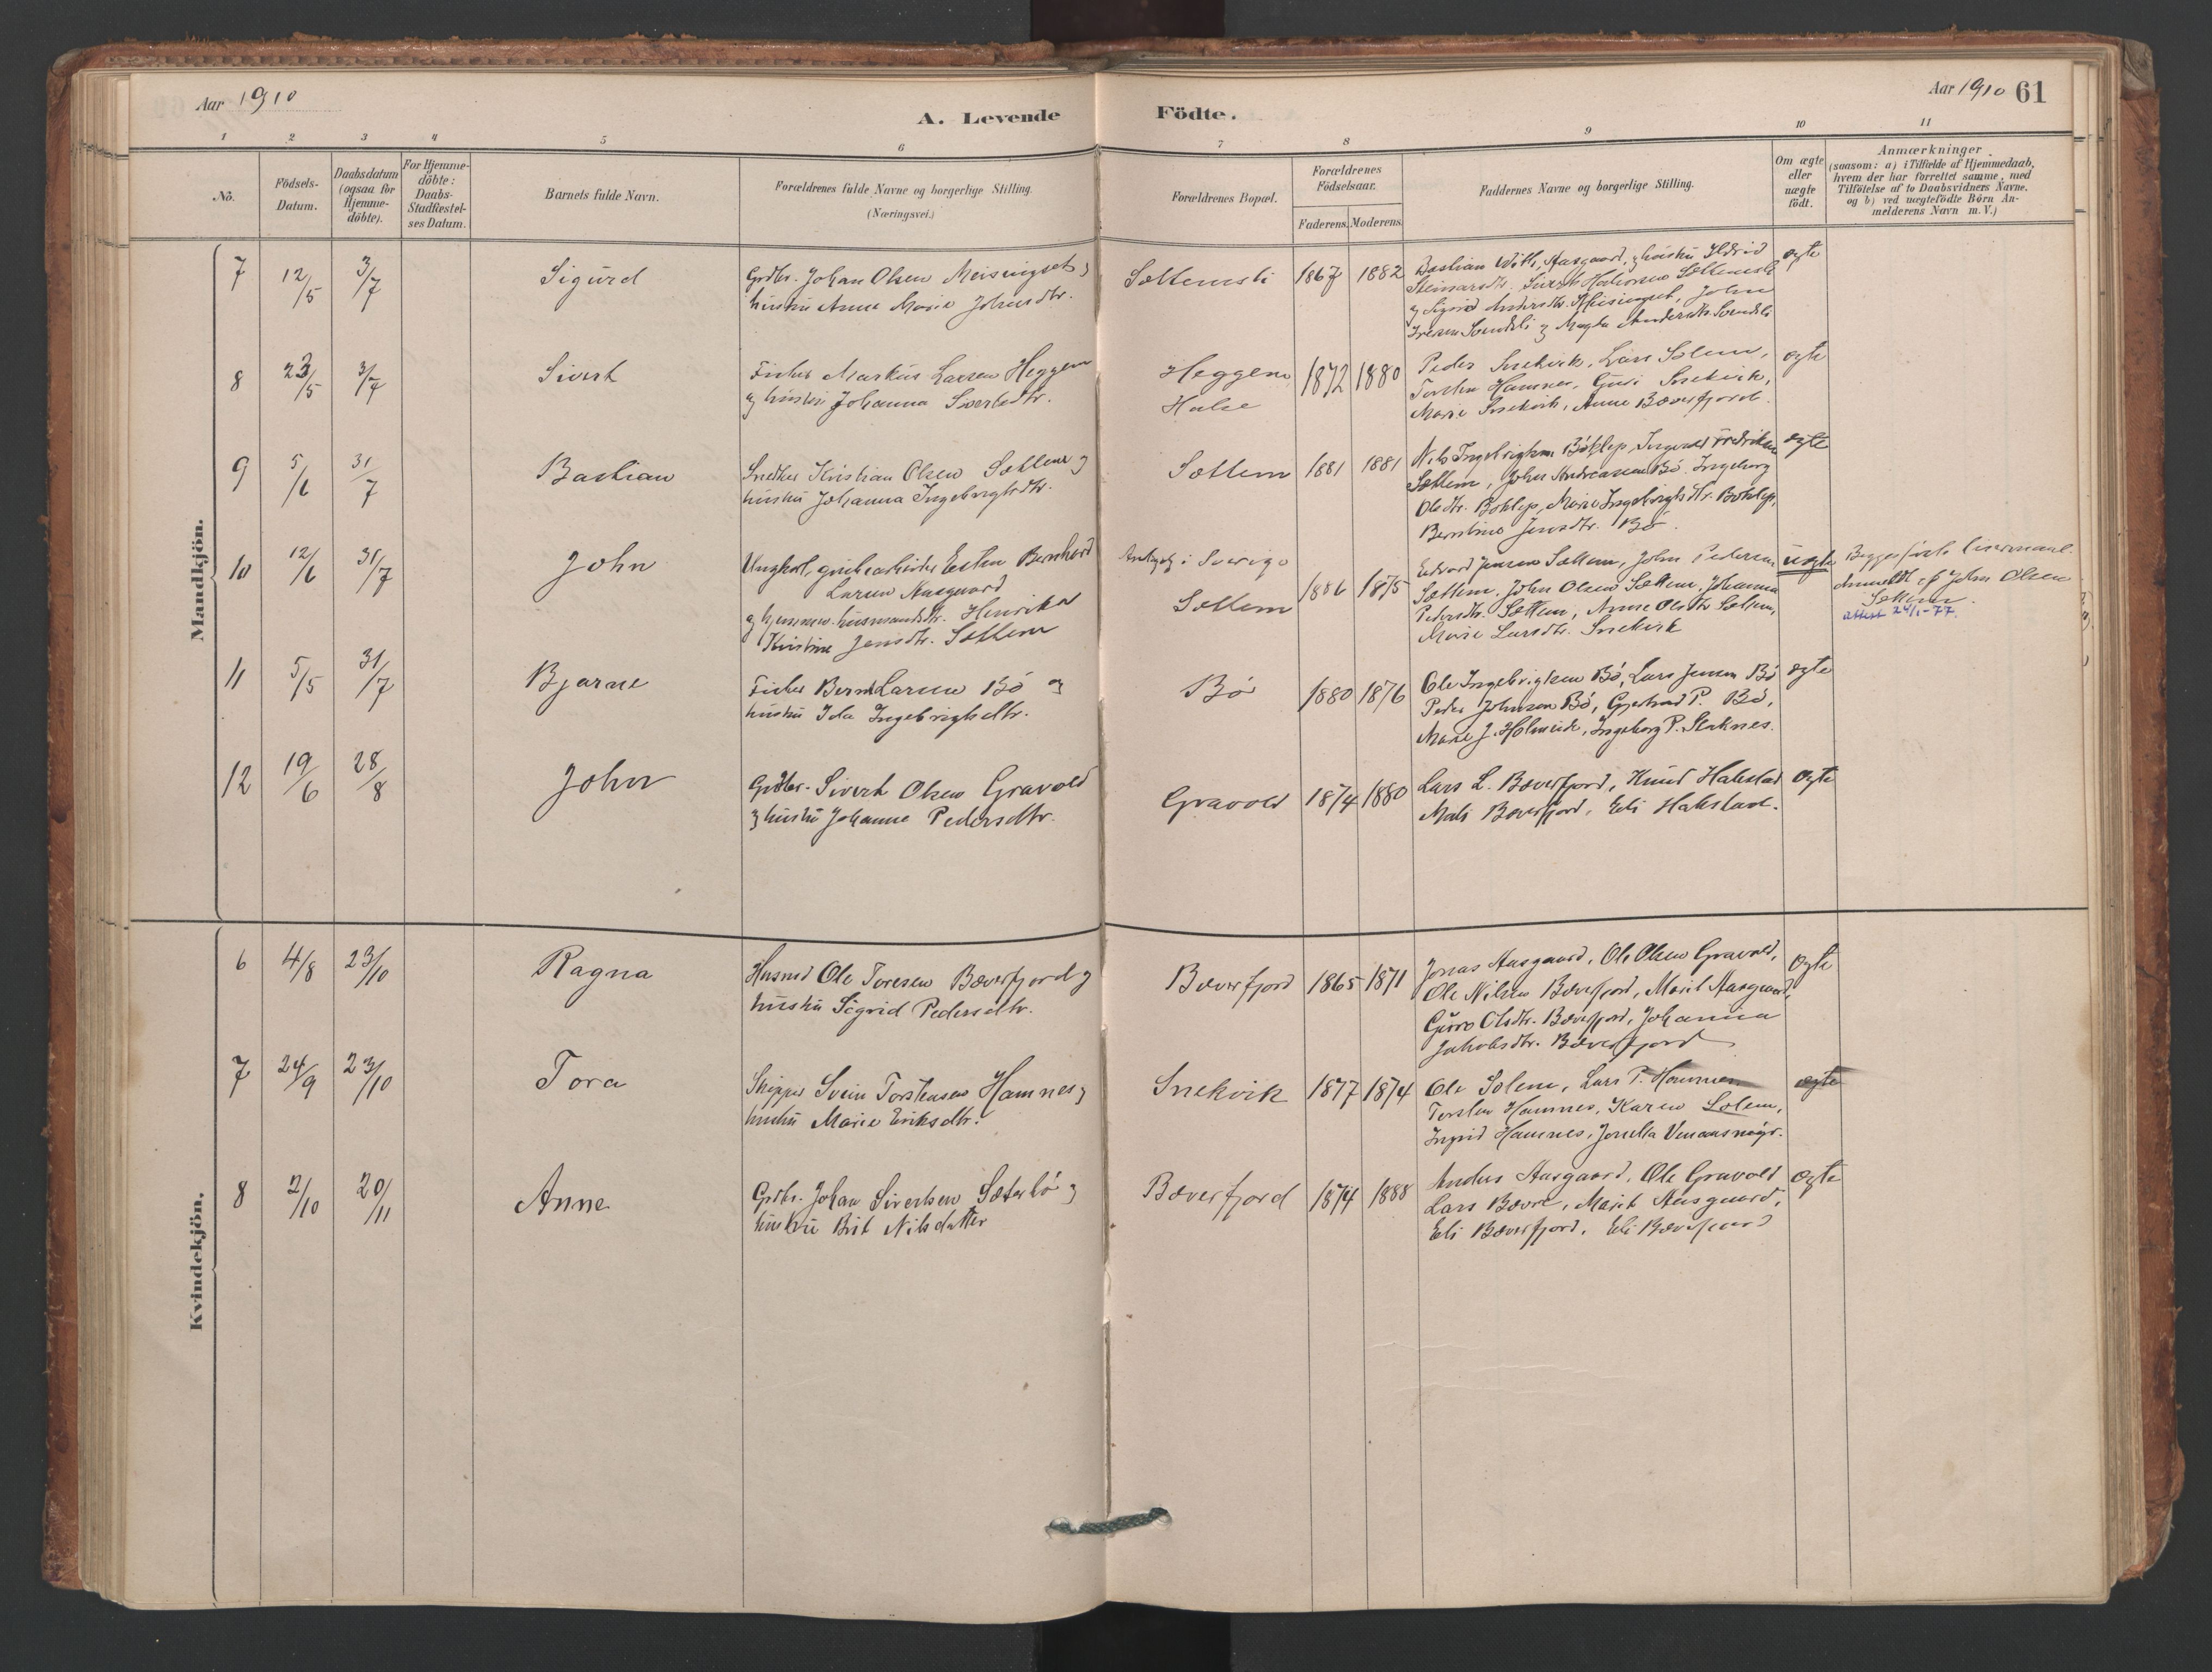 Aar 1910
A. Levende Födte.
Aar 1910 61
1 2 3 4 5 6 7 8 9 10 11
No.
Födsels-Datum.
Daabsdatum (ogsaa for Hjemme-döbte).
For Hjemme-döbte: Daabs-Stadfæstel-ses Datum.
Barnets fulde Navn.
Forældrenes fulde Navne og borgerlige Stilling.
(Næringsvei.)
Forældrenes Bopæl.
Forældrenes Födselsaar.
Faderens. Moderens.
Faddernes Navne og borgerlige Stilling.
Om ægte eller uægte födt.
Anmærkninger
(saasom: a) i Tilfælde af Hjemmedaab,
hvem der har forrettet samme, med
Tilföielse af to Daabsvidners Navne.
og b) ved uægtefödte Börn An-
melderens Navn m. V.)
Mandkjön.
7 12/5 3/7 Sigurd
Grdbr. Johan Olsen Meisingset og
hustru Anne Marie Johnsdtr.
Sættemsli 1867 1882
Bastian Aasgaard, hustru Ildrid
Steinarsdtr. Sivert Sættemsli
og Sigrid Andersdtr. Meisingset, John
Svendsli og Magla Andersdtr. Svendsli
ægte
8 23/5 3/7 Sivert
Fisker Markus Larsen Heggem
og hustru Johanna Sivertsdtr.
Heggem
Halse
1872 1880
Peder Snekvik, Lars Solem,
Torsten Hamnes, Guri Snekvik,
Marie Snekvik, Anne Bæverfjord.
ægte
9 5/6 31/7 Bastian
Snedker Kristian Olsen Sættem og
hustru Johanna Ingebrigtsdtr.
Sættem 1881 1881
Nils Ingebrigtsen Böklep, Ingvald Fredriksen
Sættem, John Andreassen Bö. Ingeborg
Olsdtr. Böklep, Marie Ingebrigtsdtr. Böklep,
Berntine Jensdtr. Bö.
ægte
10 12/6 31/7 John
Ungkarl, grubearbeider Esten Bernhard
Larsen Aasgaard
og hjemmev. husmandsdtr. Henrika
Kristine Jensdtr. Sættem
Antagelig i Sverige
Sættem
1886 1875
Edvard Jensen Sættem, John Pedersen
Sættem, John Olsen Sættem, Johanna
Pedersdtr. Sættem, Anne Olsdtr. Solem,
Marie Larsdtr. Snekvik
uægte
Begges förste Leiermaal.
Anmeldt af John Olsen
Sættem.
attest 24/1-77.
11 5/5 31/7 Bjarne
Fisker Bernt Larsen Bö og
hustru Ida Ingebrigtsdtr.
Bö 1880 1876
Ole Ingebrigtsen Bö, Lars Jensen Bö
Peder Johnsen Bö, Gjertrud P. Bö,
Marie J. Holmeide, Ingeborg P. Stoknes.
ægte
12 19/6 28/8 John
Grdbr. Sivert Olsen Gravold
og hustru Johanne Pedersdtr.
Gravold 1874 1880
Lars L. Bæverfjord, Knud Halsetad
Mali Bæverfjord, Eli Halsetad.
ægte
Kvindekjön.
6 4/8 23/10 Ragna
Husmd Ole Toresen Bæverfjord og
hustru Sigrid Pedersdtr.
Bæverfjord 1865 1871
Jonas Aasgaard, Ole Olsen Gravold,
Ole Nilsen Bæverfjord, Marit Aasgaard,
Guro Olsdtr. Bæverfjord, Johanna
Jakobsdtr. Bæverfjord
ægte
7 24/9 23/10 Tora
Skipper Svein Torstensen Hamnes og
hustru Marie Eriksdtr.
Snekvik 1877 1874
Ole Solem, Lars P. Hamnes
Torsten Hamnes, Karen Solem,
Ingrid Hamnes, Jonetta
ægte
8 2/10 20/11 Anne
Grdbr. Johan Sivertsen Sæterbö og
hustru Brit Nilsdatter
Bæverfjord 1874 1888
Anders Aasgaard, Ole Gravold
Lars Bævre, Marit Aasgaard,
Eli Bæverfjord, Eli Bæverfjord
ægte